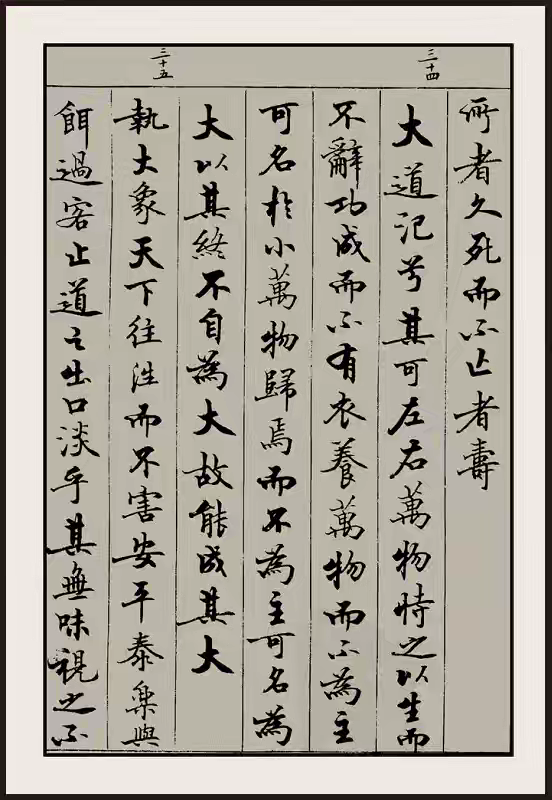 三十四
三十五
所者久死而不亡者壽
大道汜兮其可左右萬物恃之以生而
不辭功成而不有衣養萬物而不為主
可名於小萬物歸焉而不為主可名為
大以其終不自為大故能成其大
執大象天下往往而不害安平泰樂與
餌過客止道之出口淡乎其無味視之不